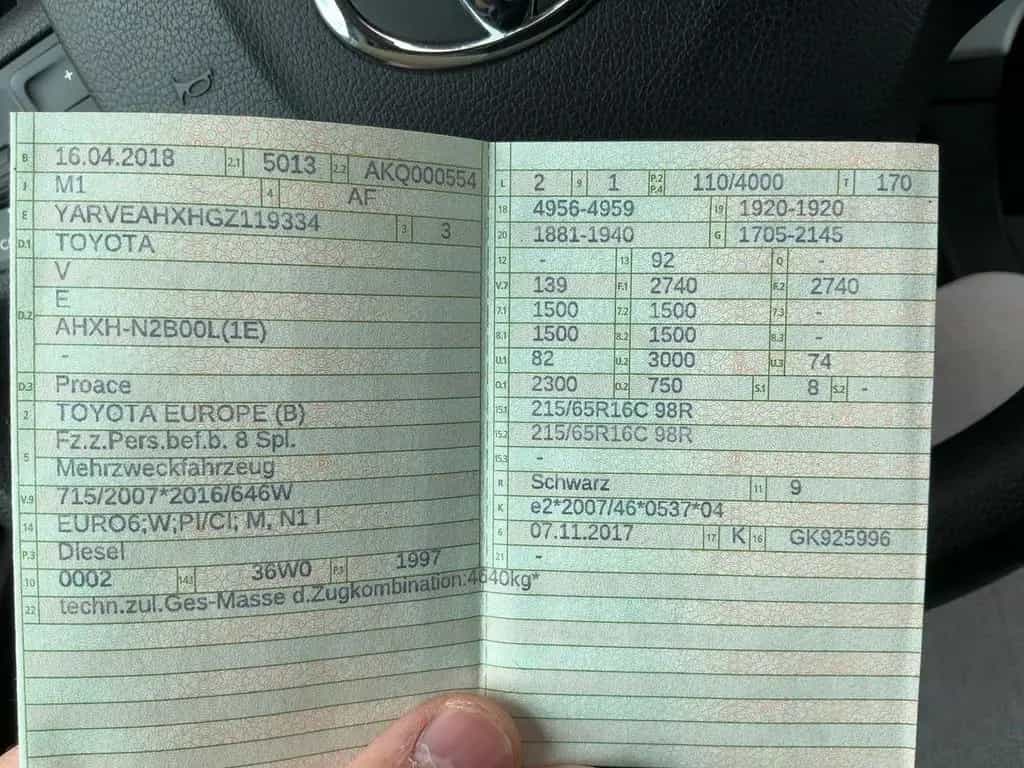 B 16.04.2018 2.1 5013 2.2 AKQ000554
J M1 4 AF
E YARVEAHXHGZ119334 3 3
D.1 TOYOTA
V
E
D.2
AHXH-N2B00L(1E)
-
D.3 Proace
2 TOYOTA EUROPE (B)
Fz.z.Pers.bef.b. 8 Spl.
5
Mehrzweckfahrzeug
V.9 715/2007*2016/646W
14 EURO6;W;PI/CI; M, N1 I
P.3 Diesel
10 0002 14.1 36W0 P.1 1997
22 techn.zul.Ges-Masse d.Zugkombination:4640kg*
L 2 9 1 P.2 P.4 110/4000 T 170
18 4956-4959 19 1920-1920
20 1881-1940 G 1705-2145
12 - 13 92 Q -
V.7 139 F.1 2740 F.2 2740
7.1 1500 7.2 1500 7.3 -
8.1 1500 8.2 1500 8.3 -
U.1 82 U.2 3000 U.3 74
O.1 2300 O.2 750 S.1 8 S.2 -
15.1 215/65R16C 98R
15.2 215/65R16C 98R
15.3 -
R Schwarz 11 9
K e2*2007/46*0537*04
6 07.11.2017 17 K 16 GK925996
21 -